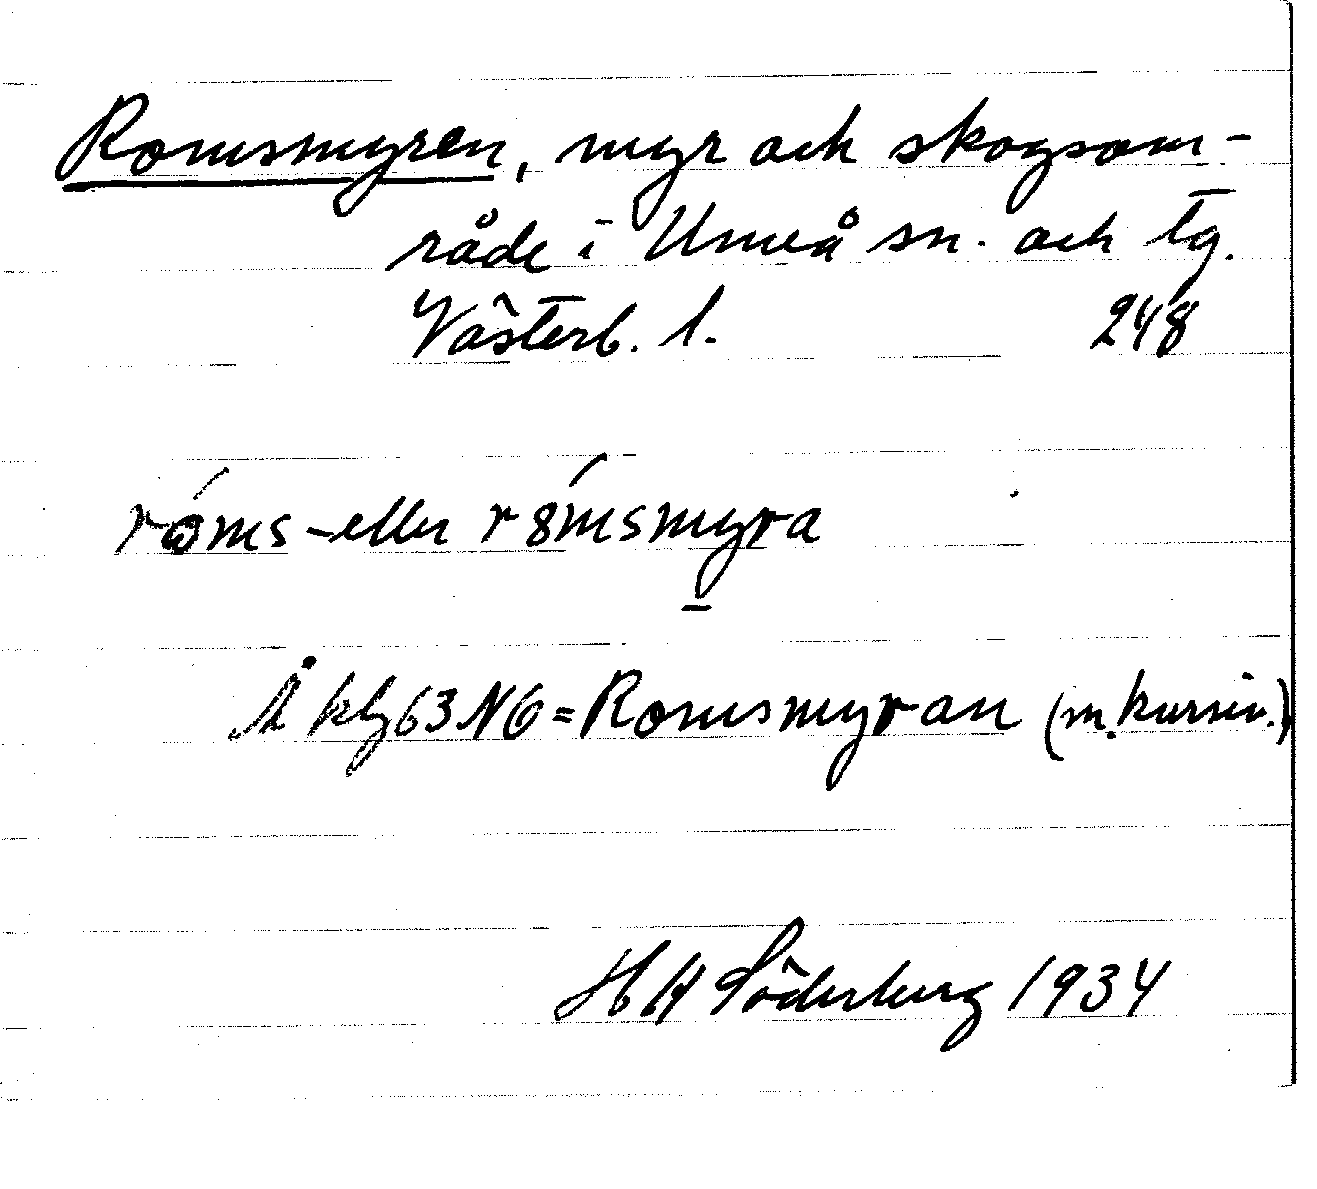 Romsmyren, myr och skogsom-
råde i Umeå sn. och tg.
Västerb. l. 248
róms- eller r8́msmyra
Å kbl 63 NO = Romsmyran (m. kursiv.)
HH Söderberg 1934